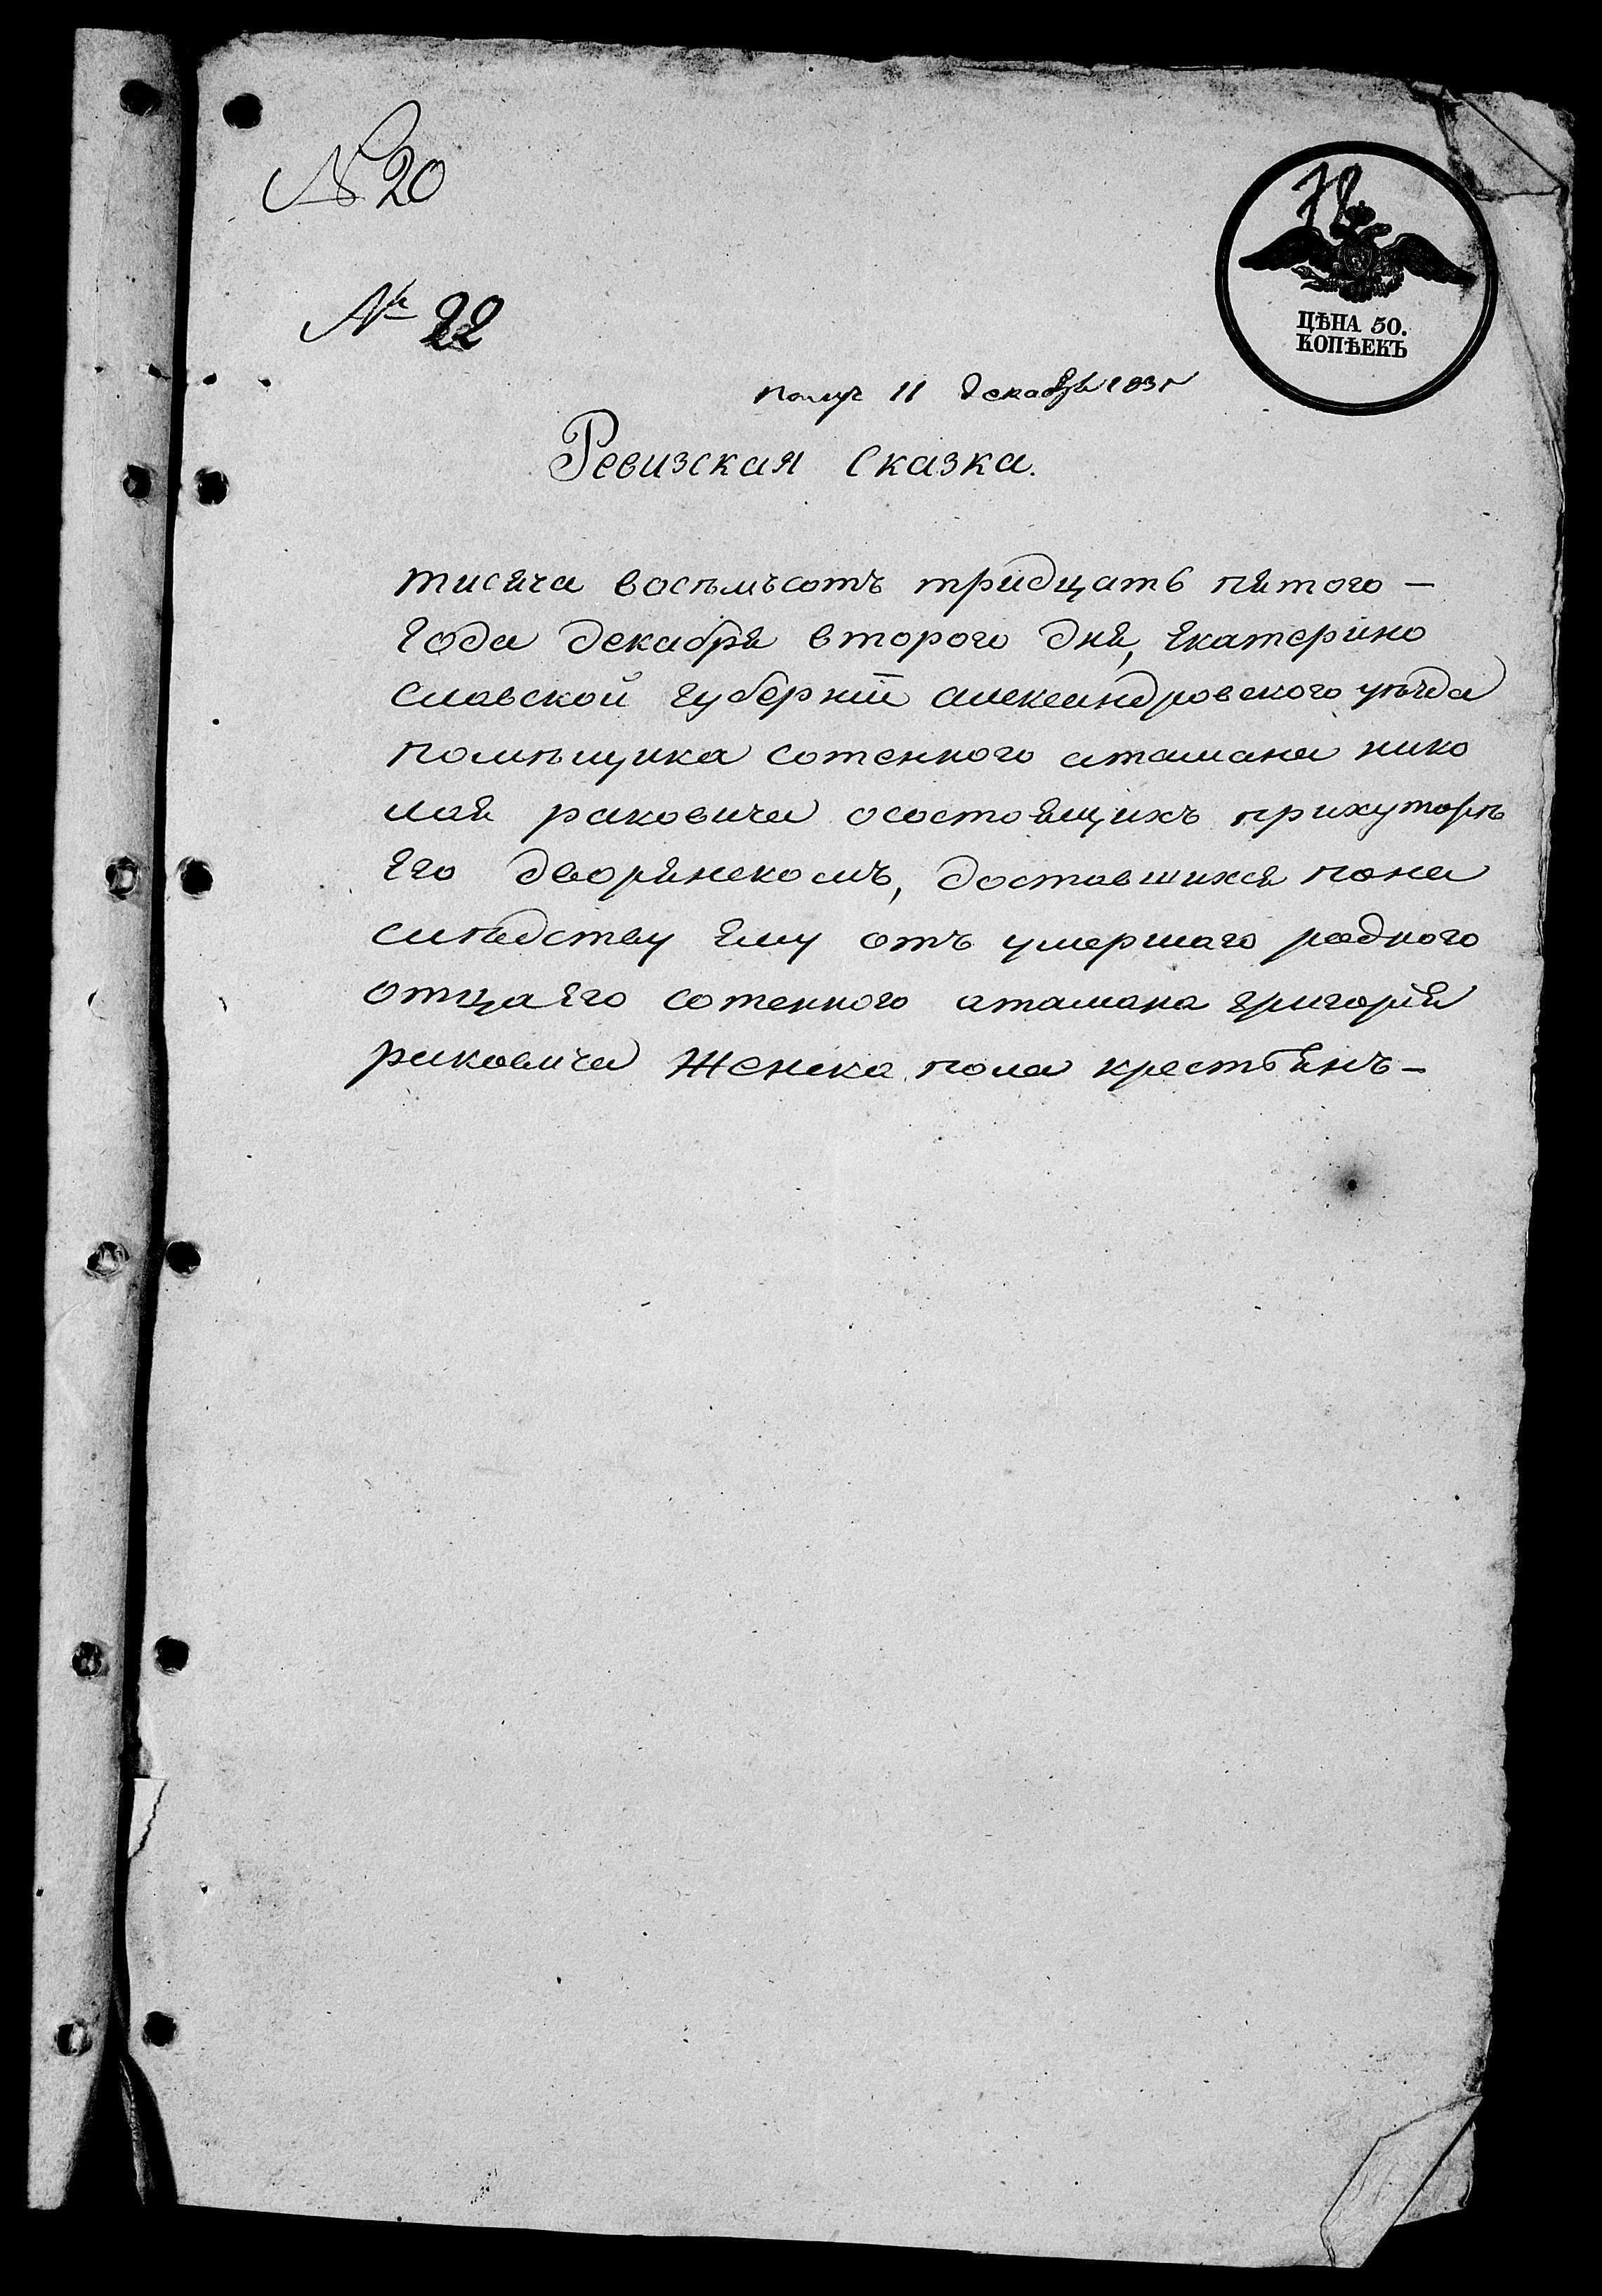 № 20
72
№ 22
ЦѢНА 50.
КОПѢЕКЪ
Получ 11 декабря 1835
Ревизская Сказка.
тисяча восѣмъсотъ тридцать пятого —
года декабря второго дня, Екатерино
славской губернiи александровского уѣзда
помѣщика сотенного атамана нико
лая раковича осостоящихъ прихуторѣ
Его дворянскомъ, доставшихся пона
слѣдству Ему отъ умершаго родного
отца Его сотенного атамана григорiя
раковича Женска пола крестьянъ —